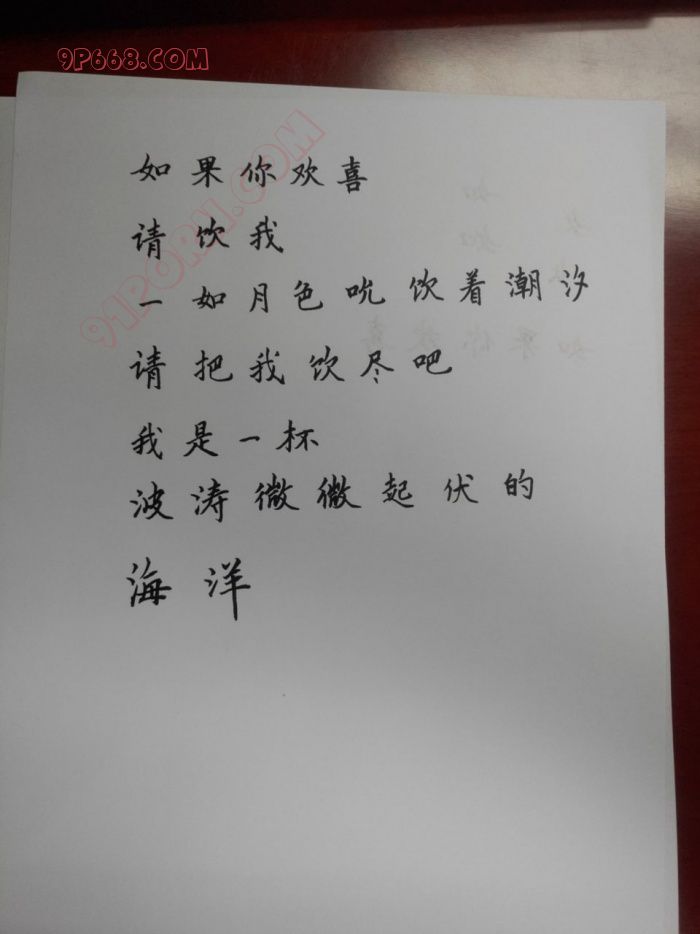 9P668.COM
91PORN.COM
如果你欢喜
请饮我
一如月色吮饮着潮汐
请把我饮尽吧
我是一杯
波涛微微起伏的
海洋